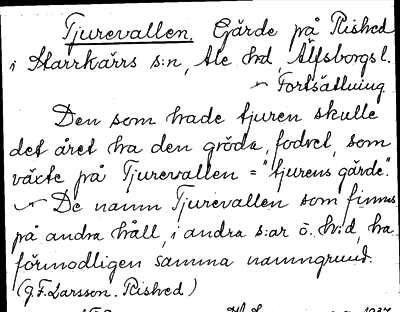 Tjurevallen. Gärde på Rished
i Starrkärrs s:n, Ale hd, Älfsborgs l.
Fortsättning
Den som hade tjuren skulle
det året ha den gröda, fodret, som
växte på Tjurevallen = "tjurens gärde".
De namn Tjurevallen som finnas
på andra håll, i andra s:ar o. h:d, ha
förmodligen samma namngrund.
(G.F. Larsson. Rished)
1937